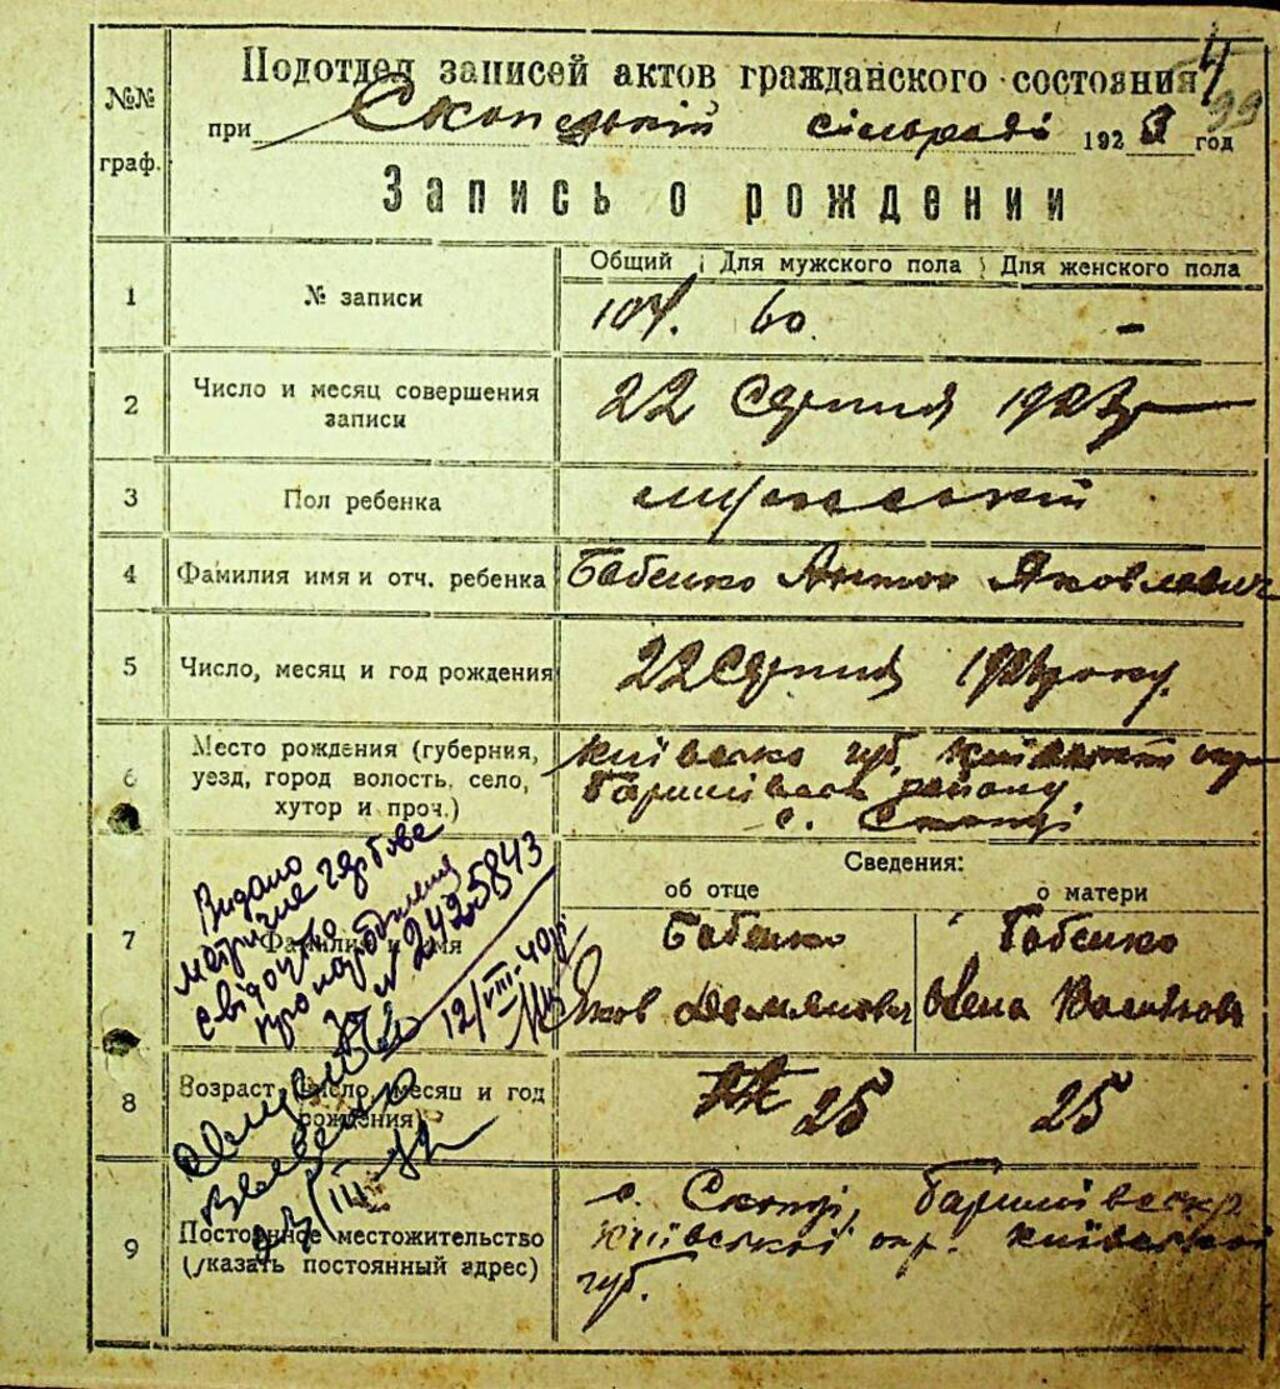 4
99
№№ граф.
Подотдел записей актов гражданского состояния
при Скопецькій сільраді 1923 год
Запись о рождении
Общий Для мужского пола Для женского пола
1 № записи 104. 60. -
2 Число и месяц совершения записи 22 Серпня 1923р
3 Пол ребенка мужеський
4 Фамилия имя и отч. ребенка Бабенко Антон Яковлевич
5 Число, месяц и год рождения 22 Серпня 1923 року.
6 Место рождения (губерния, уезд, город волость, село, хутор и проч.)
Київська губ. Київської окр
Баришівськ району,
с. Скопці
Сведения:
об отце о матери
7 Фамилия и имя
Бабенко Бабенко
Яков Демьянович Олена
8 Возраст (число, месяц и год рождения) 25 25
9 Постоянное местожительство (указать постоянный адрес)
с. Скопці, Баришівськ р
Київської окр. Київської
губ.
Видано
метричне гербове
свідоцтво
про народження
за № 2425843
12/VIII-40р
23/III-42